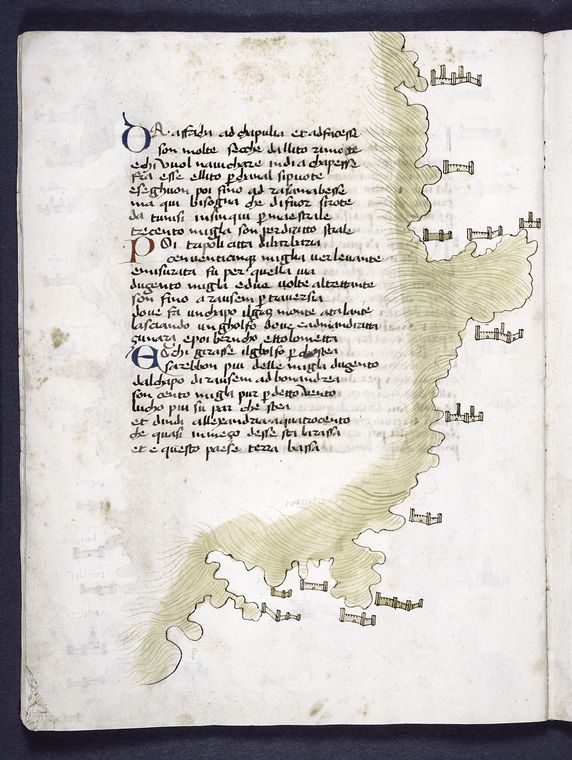 DA affachi ad chapulia et adfacesse
son molte secche dallito rimote
echi vuol navichare india chapesse
fra esse ellito p chanal sipuote
eseghuon poi fino ad rasamabesse
ma qui bisogna che difuor sirote
da tunisi insinqui p maestrale
trecento migla son per diritto strale
POi tripoli citta dibarbaria
con venticinq miglia ver levante
emisurata fu per quella via
dugento migla edue volte altrettante
son fino a rausem p traversia
dove fa unchapo ilgran monte atalante
lasciando ungholfo dove eadmandiritta
zunara epoi bernicho ettolometta
ET chi girasse ilgholfo p chostea
sarebbon piu delle migla dugento
dalchapo di rausem ad bonandrea
son cento migla pur p detto vento
lucho piu su par che stea
et dindi allexandria aquatrocento
che quasi inmezo desse sta larassa
et e questo paese terra bassa